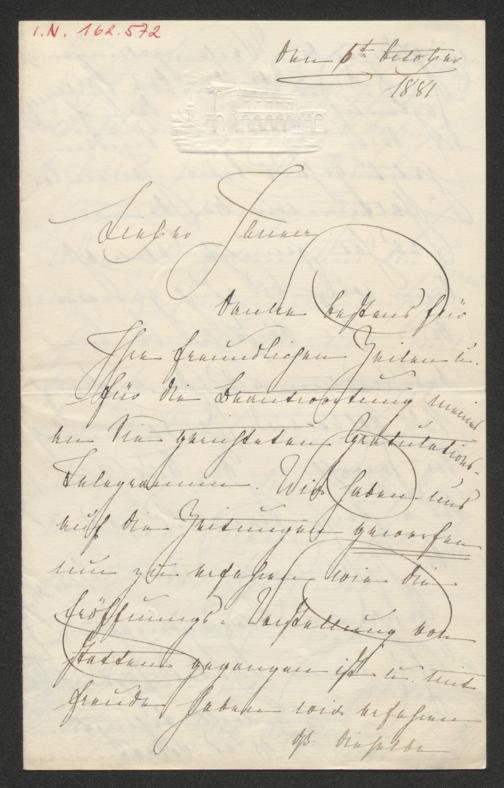 I.N. 162.572
Den 6t October
1881
Lieber Jauner
Danke bestens für
Ihre freundlichen Zeilen u.
für die Beantwortung meines
an Sie gerichteten Gratulations-
Telegramm. Wir haben uns
auf die Zeitungen geworfen
um zu erfahren wie die
Eröffnungs-Vorstellung von
statten gegangen ist u. mit
Freude haben wir erfahren
dß dieselbe